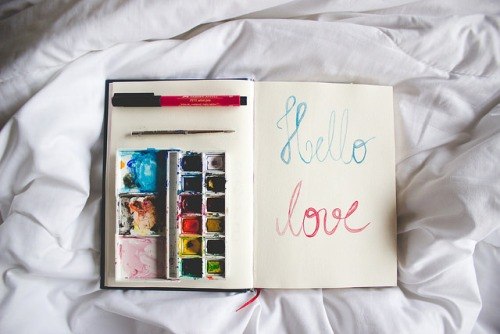 Hello
love